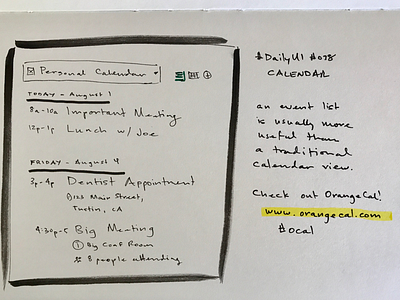 Personal Calendar
TODAY - August 1
8a-10a Important Meeting
12p-1p Lunch w/ Joe
FRIDAY - August 4
3p-4p Dentist Appointment
Main Street,
Tustin, CA
4:30p-5 Big Meeting
Big Conf Room
8 people attending
#DailyUI #038
CALENDAR
an event list
is usually more
useful than
a traditional
calendar view.
Check out OrangeCal!
www.orangecal.com
#ocal